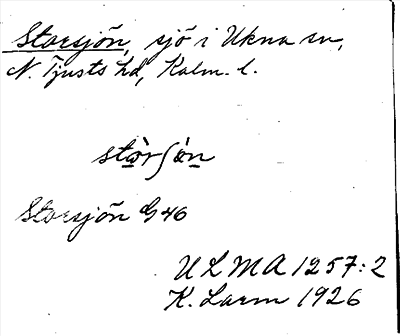 Storsjön, sjö i Ukna sn,
N. Tjusts hd, Kalm. l.
stòrʃòn
Storsjön G46
ULMA 1257:2
K. Larm 1926